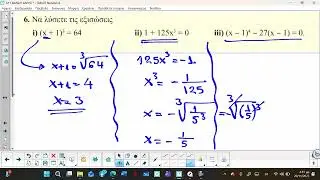 6. Να λύσετε τις εξισώσεις
i) (x + 1)³ = 64
ii) 1 + 125x³ = 0
iii) (x − 1)⁴ − 27(x − 1) = 0
x+1 = ∛64
x+1 = 4
x = 3
125x³ = -1
x³ = - 1/125
x = - ∛(1/5³) = ∛(1/5)³
x = - 1/5